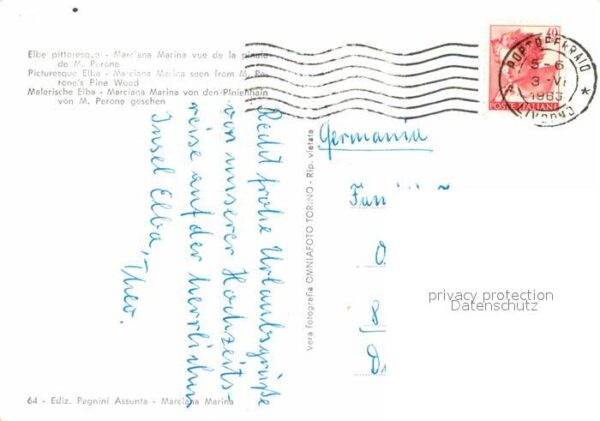 Elbe pittoresque - Marciana Marina vue de la pineta
de M. Perone
Picturesque Elba - Marciana Marina seen from M. Pe-
rone's Pine Wood
Malerische Elba - Marciana Marina von den Pinienhain
von M. Perone gesehen
Recht frohe Urlaubsgrüße
von unserer Hochzeits-
reise auf der herrlichen
Insel Elba,
Theo.
Vera fotografia OMNIAFOTO TORINO - Rip. vietata
40
POSTE ITALIANE
PORTOFERRAIO
5-6
3-VI
1963
LIVORNO
Germania
Fam
O
8
D
privacy protection
Datenschutz
64 - Ediz. Pagnini Assunta - Marciana Marina